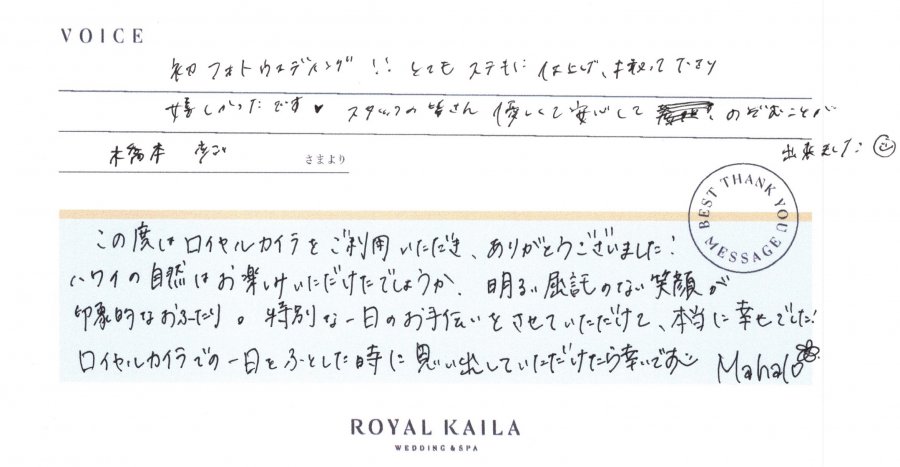 VOICE
初フォトウェディング!! とてもステキに仕上げ、撮って下さり
嬉しかったです♥ スタッフの皆さん優しくて安心してのぞむことが
出来ました☺
橋本 さまより
BEST THANK YOU MESSAGE
この度はロイヤルカイラをご利用いただき、ありがとうございました!
ハワイの自然はお楽しみいただけたでしょうか、明るい屈託のない笑顔が
印象的なおふたり。特別な一日のお手伝いをさせていただけて、本当に幸せでした!
ロイヤルカイラでの一日をふとした時に思い出していただけたら幸いです
Mahalo
ROYAL KAILA
WEDDING & SPA